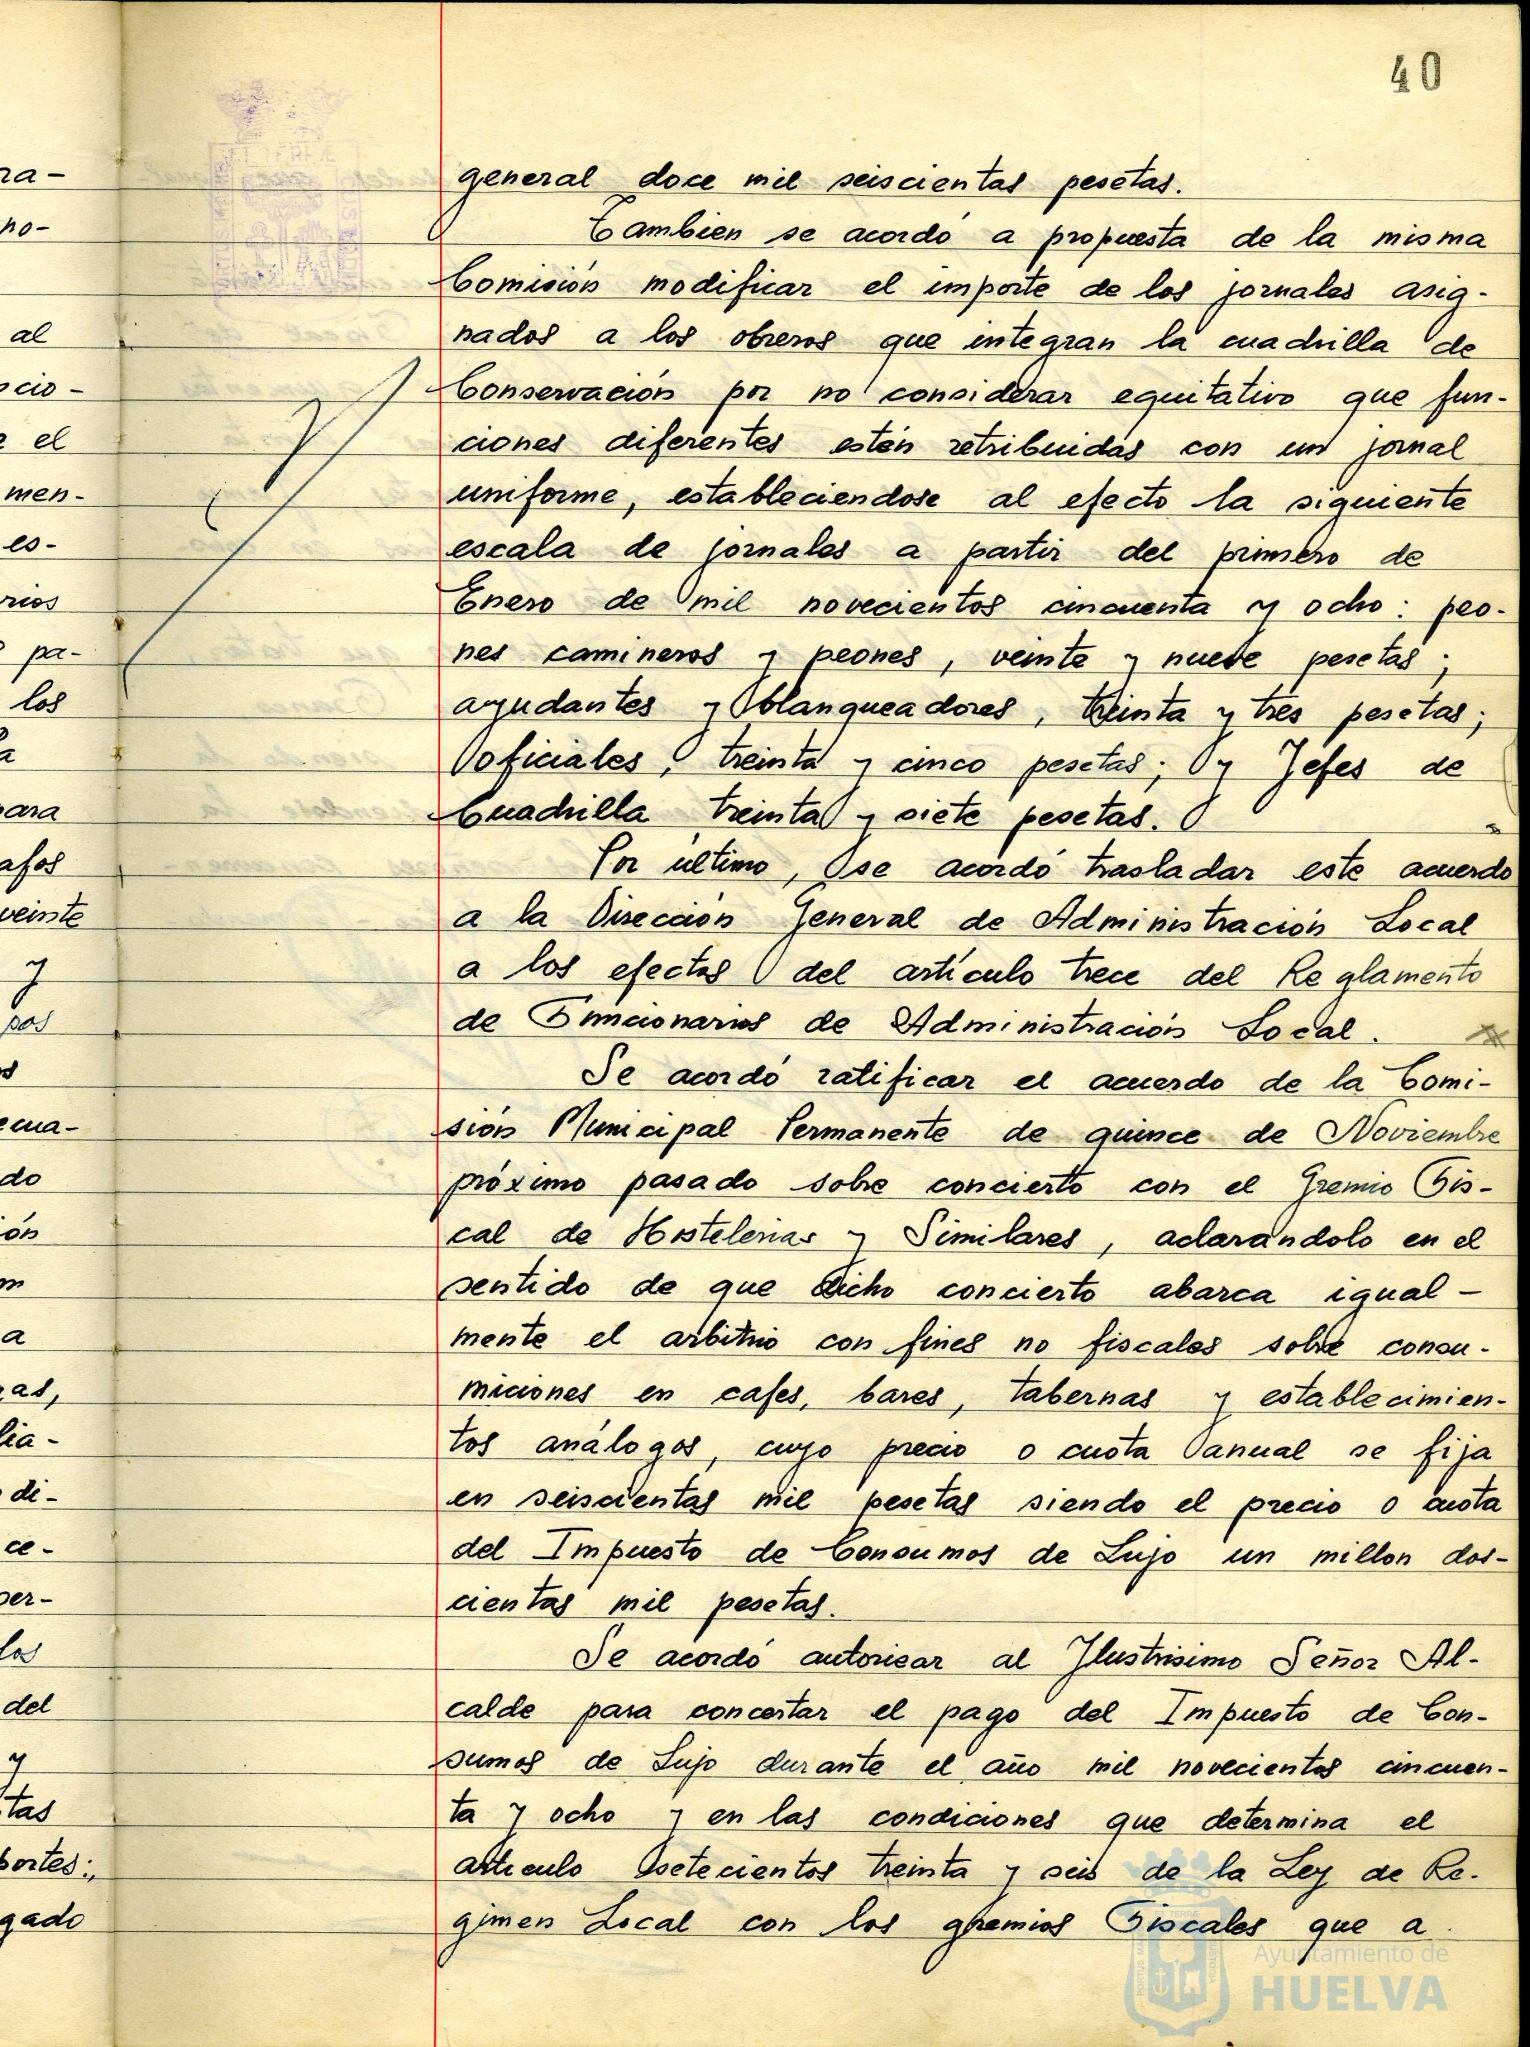 40
general doce mil seiscientas pesetas.
Tambien se acordó a propuesta de la misma
Comisión modificar el importe de los jornales asig-
nados a los obreros que integran la cuadrilla de
Conservación por no considerar equitativo que fun-
ciones diferentes estén retribuidas con un jornal
uniforme, estableciendose al efecto la siguiente
escala de jornales a partir del primero de
Enero de mil novecientos cincuenta y ocho: peo-
nes camineros y peones, veinte y nueve pesetas;
ayudantes y blanqueadores, treinta y tres pesetas;
oficiales, treinta y cinco pesetas; y Jefes de
Cuadrilla treinta y siete pesetas.
Por último, se acordó trasladar este acuerdo
a la Dirección General de Administración Local
a los efectos del artículo trece del Reglamento
de Funcionarios de Administración Local.
Se acordó ratificar el acuerdo de la Comi-
sión Municipal Permanente de quince de Noviembre
próximo pasado sobre concierto con el Gremio Fis-
cal de Hostelerias y Similares, aclarándolo en el
sentido de que dicho concierto abarca igual-
mente el arbitrio con fines no fiscales sobre consu-
miciones en cafes, bares, tabernas y establecimien-
tos análogos, cuyo precio o cuota anual se fija
en seiscientas mil pesetas siendo el precio o cuota
del Impuesto de Consumos de Lujo un millon dos-
cientas mil pesetas.
Se acordó autorizar al Ilustrisimo Señor Al-
calde para concertar el pago del Impuesto de Con-
sumos de Lujo durante el año mil novecientos cincuen-
ta y ocho y en las condiciones que determina el
articulo setecientos treinta y seis de la Ley de Re-
gimen Local con los gremios Fiscales que a
ra-
no-
al
cio-
el
men-
es-
rios
pa-
los
a
para
afos
veinte
y
pos
cua-
do
ión
m
a
ras,
lia-
di-
ce-
per-
los
del
y
tas
portes:,
gado
Ayuntamiento de
HUELVA